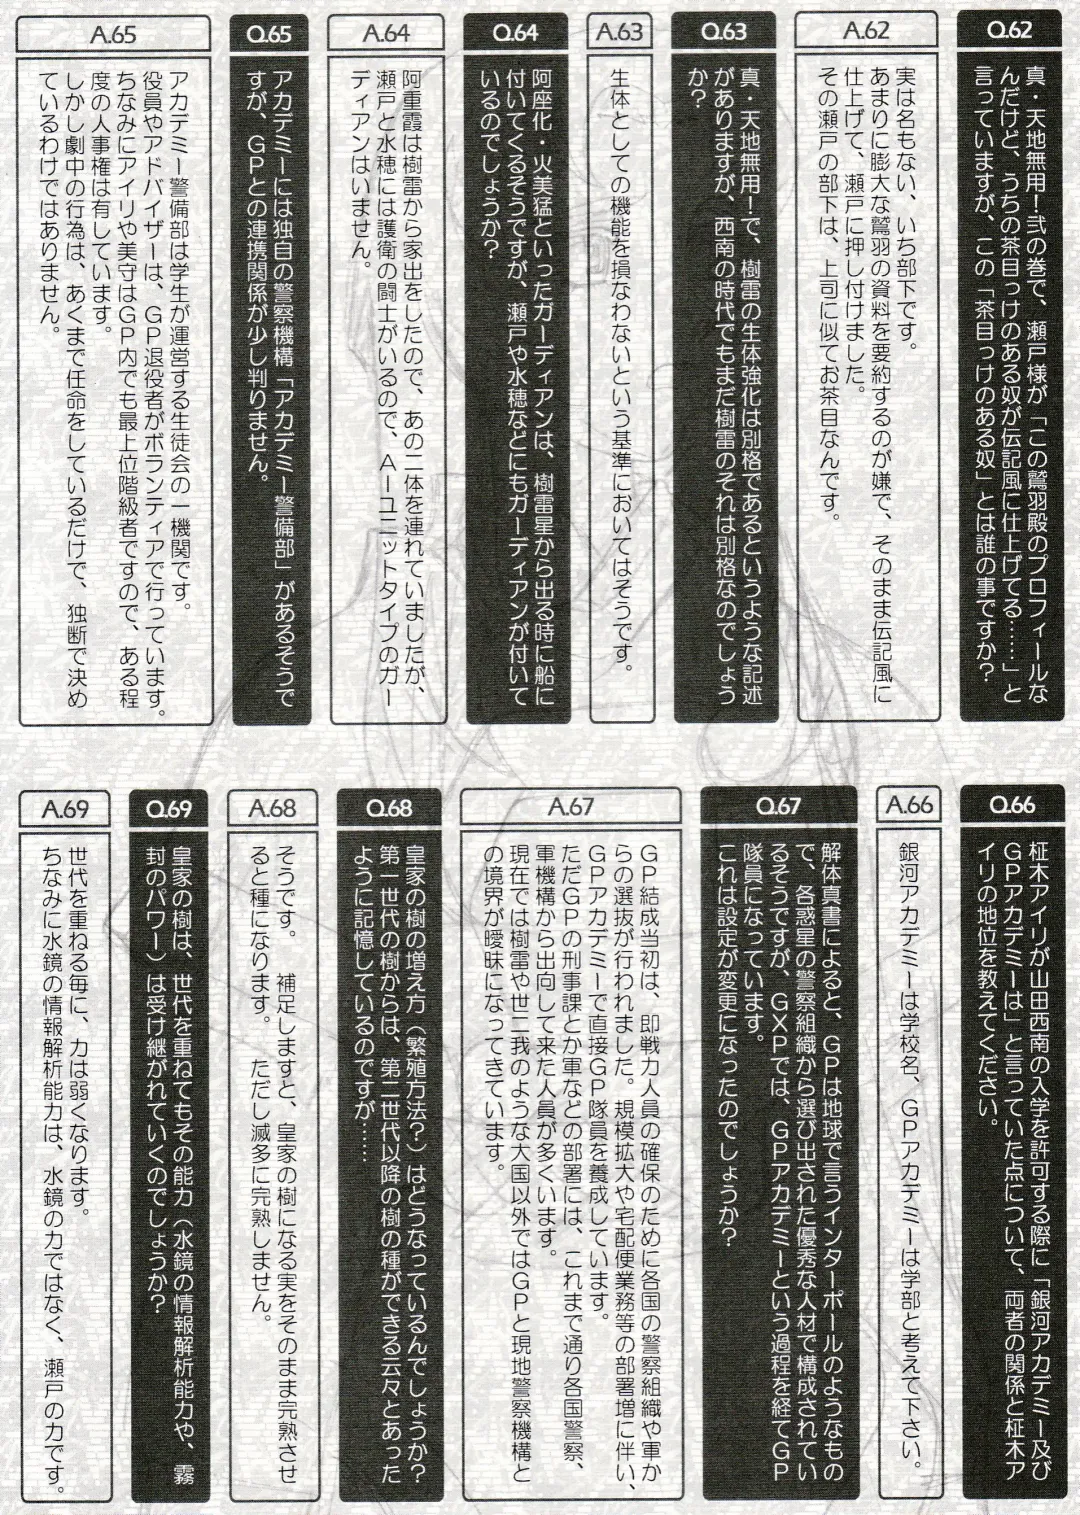 Q.62
真・天地無用！弐の巻で、瀬戸様が「この鷲羽殿のプロフィールな
んだけど、うちの茶目っけのある奴が伝記風に仕上げてる……」と
言っていますが、この「茶目っけのある奴」とは誰の事ですか？
A.62
実は名もない、いち部下です。
あまりに膨大な鷲羽の資料を要約するのが嫌で、そのまま伝記風に
仕上げて、瀬戸に押し付けました。
その瀬戸の部下は、上司に似てお茶目なんです。
Q.63
真・天地無用！で、樹雷の生体強化は別格であるというような記述
がありますが、西南の時代でもまだ樹雷のそれは別格なのでしょう
か？
A.63
生体としての機能を損なわないという基準においてはそうです。
Q.64
阿座化・火美猛といったガーディアンは、樹雷星から出る時に船に
付いてくるそうですが、瀬戸や水穂などにもガーディアンが付いて
いるのでしょうか？
A.64
阿重霞は樹雷から家出をしたので、あの二体を連れていましたが、
瀬戸と水穂には護衛の闘士がいるので、Aーユニットタイプのガー
ディアンはいません。
Q.65
アカデミーには独自の警察機構「アカデミー警備部」があるそうで
すが、GPとの連携関係が少し判りません。
A.65
アカデミー警備部は学生が運営する生徒会の一機関です。
役員やアドバイザーは、GP退役者がボランティアで行っています。
ちなみにアイリや美守はGP内でも最上位階級者ですので、ある程
度の人事権は有しています。
しかし劇中の行為は、あくまで任命をしているだけで、独断で決め
ているわけではありません。
Q.66
柾木アイリが山田西南の入学を許可する際に「銀河アカデミー及び
GPアカデミーは」と言っていた点について、両者の関係と柾木ア
イリの地位を教えてください。
A.66
銀河アカデミーは学校名、GPアカデミーは学部と考えて下さい。
Q.67
解体真書によると、GPは地球で言うインターポールのようなもの
で、各惑星の警察組織から選び出された優秀な人材で構成されてい
るそうですが、GXPでは、GPアカデミーという過程を経てGP
隊員になっています。
これは設定が変更になったのでしょうか？
A.67
GP結成当初は、即戦力人員の確保のために各国の警察組織や軍か
らの選抜が行われました。規模拡大や宅配便業務等の部署増に伴い、
GPアカデミーで直接GP隊員を養成しています。
ただGPの刑事課とか軍などの部署には、これまで通り各国警察、
軍機構から出向して来た人員が多くいます。
現在では樹雷や世二我のような大国以外ではGPと現地警察機構と
の境界が曖昧になってきています。
Q.68
皇家の樹の増え方（繁殖方法？）はどうなっているんでしょうか？
第一世代の樹からは、第二世代以降の樹の種ができる云々とあった
ように記憶しているのですが……
A.68
そうです。　補足しますと、皇家の樹になる実をそのまま完熟させ
ると種になります。　ただし滅多に完熟しません。
Q.69
皇家の樹は、世代を重ねてもその能力（水鏡の情報解析能力や、霧
封のパワー）は受け継がれていくのでしょうか？
A.69
世代を重ねる毎に、力は弱くなります。
ちなみに水鏡の情報解析能力は、水鏡の力ではなく、瀬戸の力です。